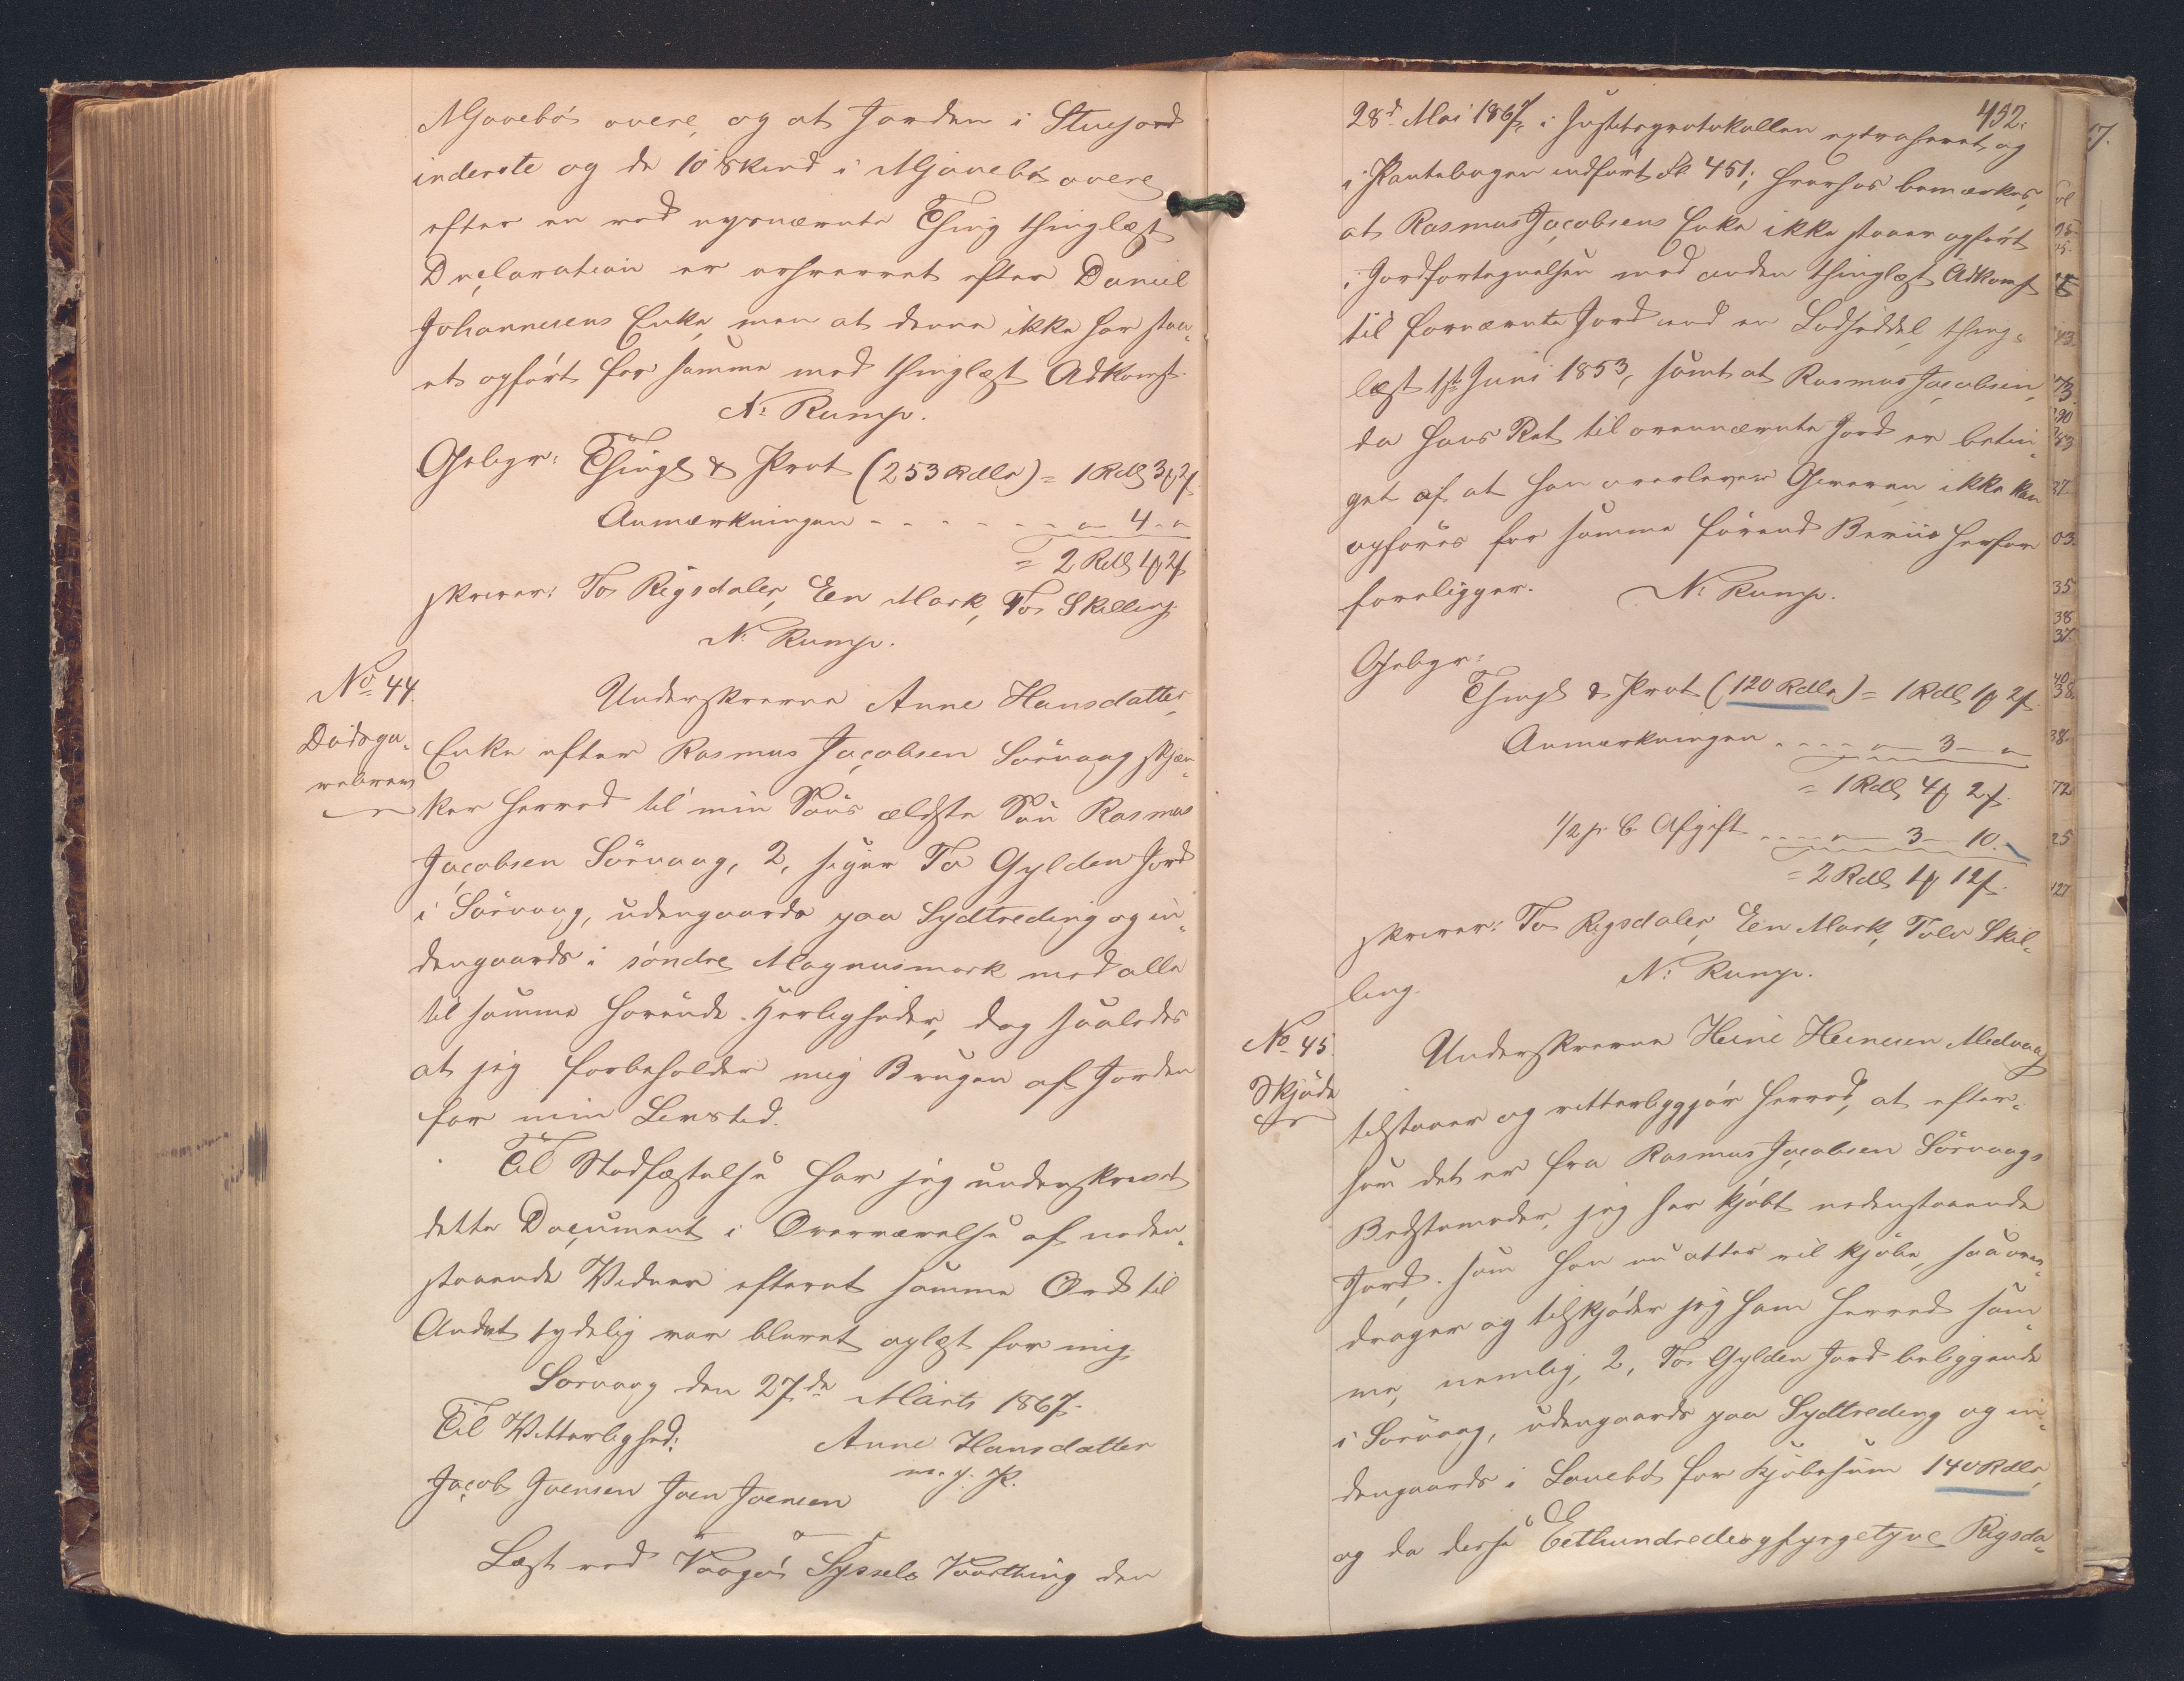 Mjavebö overe, og at Jorden i Stuejord
inderste og de 10 Skind i Mjavebö overe
efter en ved nysnævnte Thing thinglæst
Declaration er erhvervet efter Daniel
Johannesens Enke, men at denne ikke har staa-
et opfört for samme med thinglæst Adkomst.
N: Rump.
Gebyr: Thingl & Prot (253 Rdlr) = 1 Rdl 3 ꟙ 2 ß
Anmærkningen - - - - - - " - 4 - "
= 2 Rdl 1 ꟙ 2 ß
skriver: To Rigsdaler, Een Mark, To Skilling.
N: Rump.
No 44.
Dödsga-
vebrev
Underskrevne Anne Hansdatter,
Enke efter Rasmus Jacobsen Sörvaag skjæn-
ker herved til min Söns ældste Sön Rasmus
Jacobsen Sörvaag, 2, siger To Gylden Jord
i Sörvaag, udengaards paa Sydtreding og in-
dengaards i söndre Magnusmark med alle
til samme hörende Herligheder, dog saaledes
at jeg forbeholder mig Brugen af Jorden
for min Levetid.
Til Stadfæstelse har jeg underskrevet
dette Document i Overværelse af neden-
staaende Vidner efterat samme Ord til
Andet tydelig var blevet oplæst for mig.
Sörvaag den 27de Marts 1867.
Til Vitterlighed: Anne Hansdatter
m. f. P.
Jacob Joensen Joen Joensen
Læst ved Vaagö Syssels Vaarthing den
452.
28d Mai 1867, i Justitsprotokollen extraheret og
i Pantebogen indfört Fol 451; hvorhos bemærkes,
at Rasmus Jacobsens Enke ikke staaer opfört
i Jordfortegnelsen med anden thinglæst Adkomst
til fornævnte Jord end en Lodseddel thing-
læst 1ste Juni 1853, samt at Rasmus Jacobsen,
da hans Ret til ovennævnte Jord er betin-
get af at han overlever Giveren ikke kan
opföres for samme förend Beviis herfor
foreligger. N: Rump.
Gebyr:
Thingl & Prot (120 Rdlr) = 1 Rdl 1 ꟙ 2 ß
Anmærkningen - - - - " - 3 - "
= 1 Rdl 4 ꟙ 2 ß
1/2 p. C. Afgift - - - - " - 3 - 10.
= 2 Rdl 1 ꟙ 12 ß
skriver: To Rigsdaler, Een Mark, Tolv Skil-
ling. N: Rump.
No 45.
Skjöde
Underskrevne Heine Heinesen Midvaag
tilstaaer og vitterliggjör herved, at efter-
som det er fra Rasmus Jacobsen Sörvaags
Bedstemoder, jeg har kjöbt nedenstaaende
Jord, som han nu atter vil kjöbe, saa over-
drager og tilskjöder jeg ham herved sam-
me, nemlig, 2, To Gylden Jord beliggende
i Sörvaag, udengaards paa Sydtreding og in-
dengaards i Lavebö for Kjöbesum 140 Rdlr,
og da disse Eethundredeogfyrgetyve Rigsda-